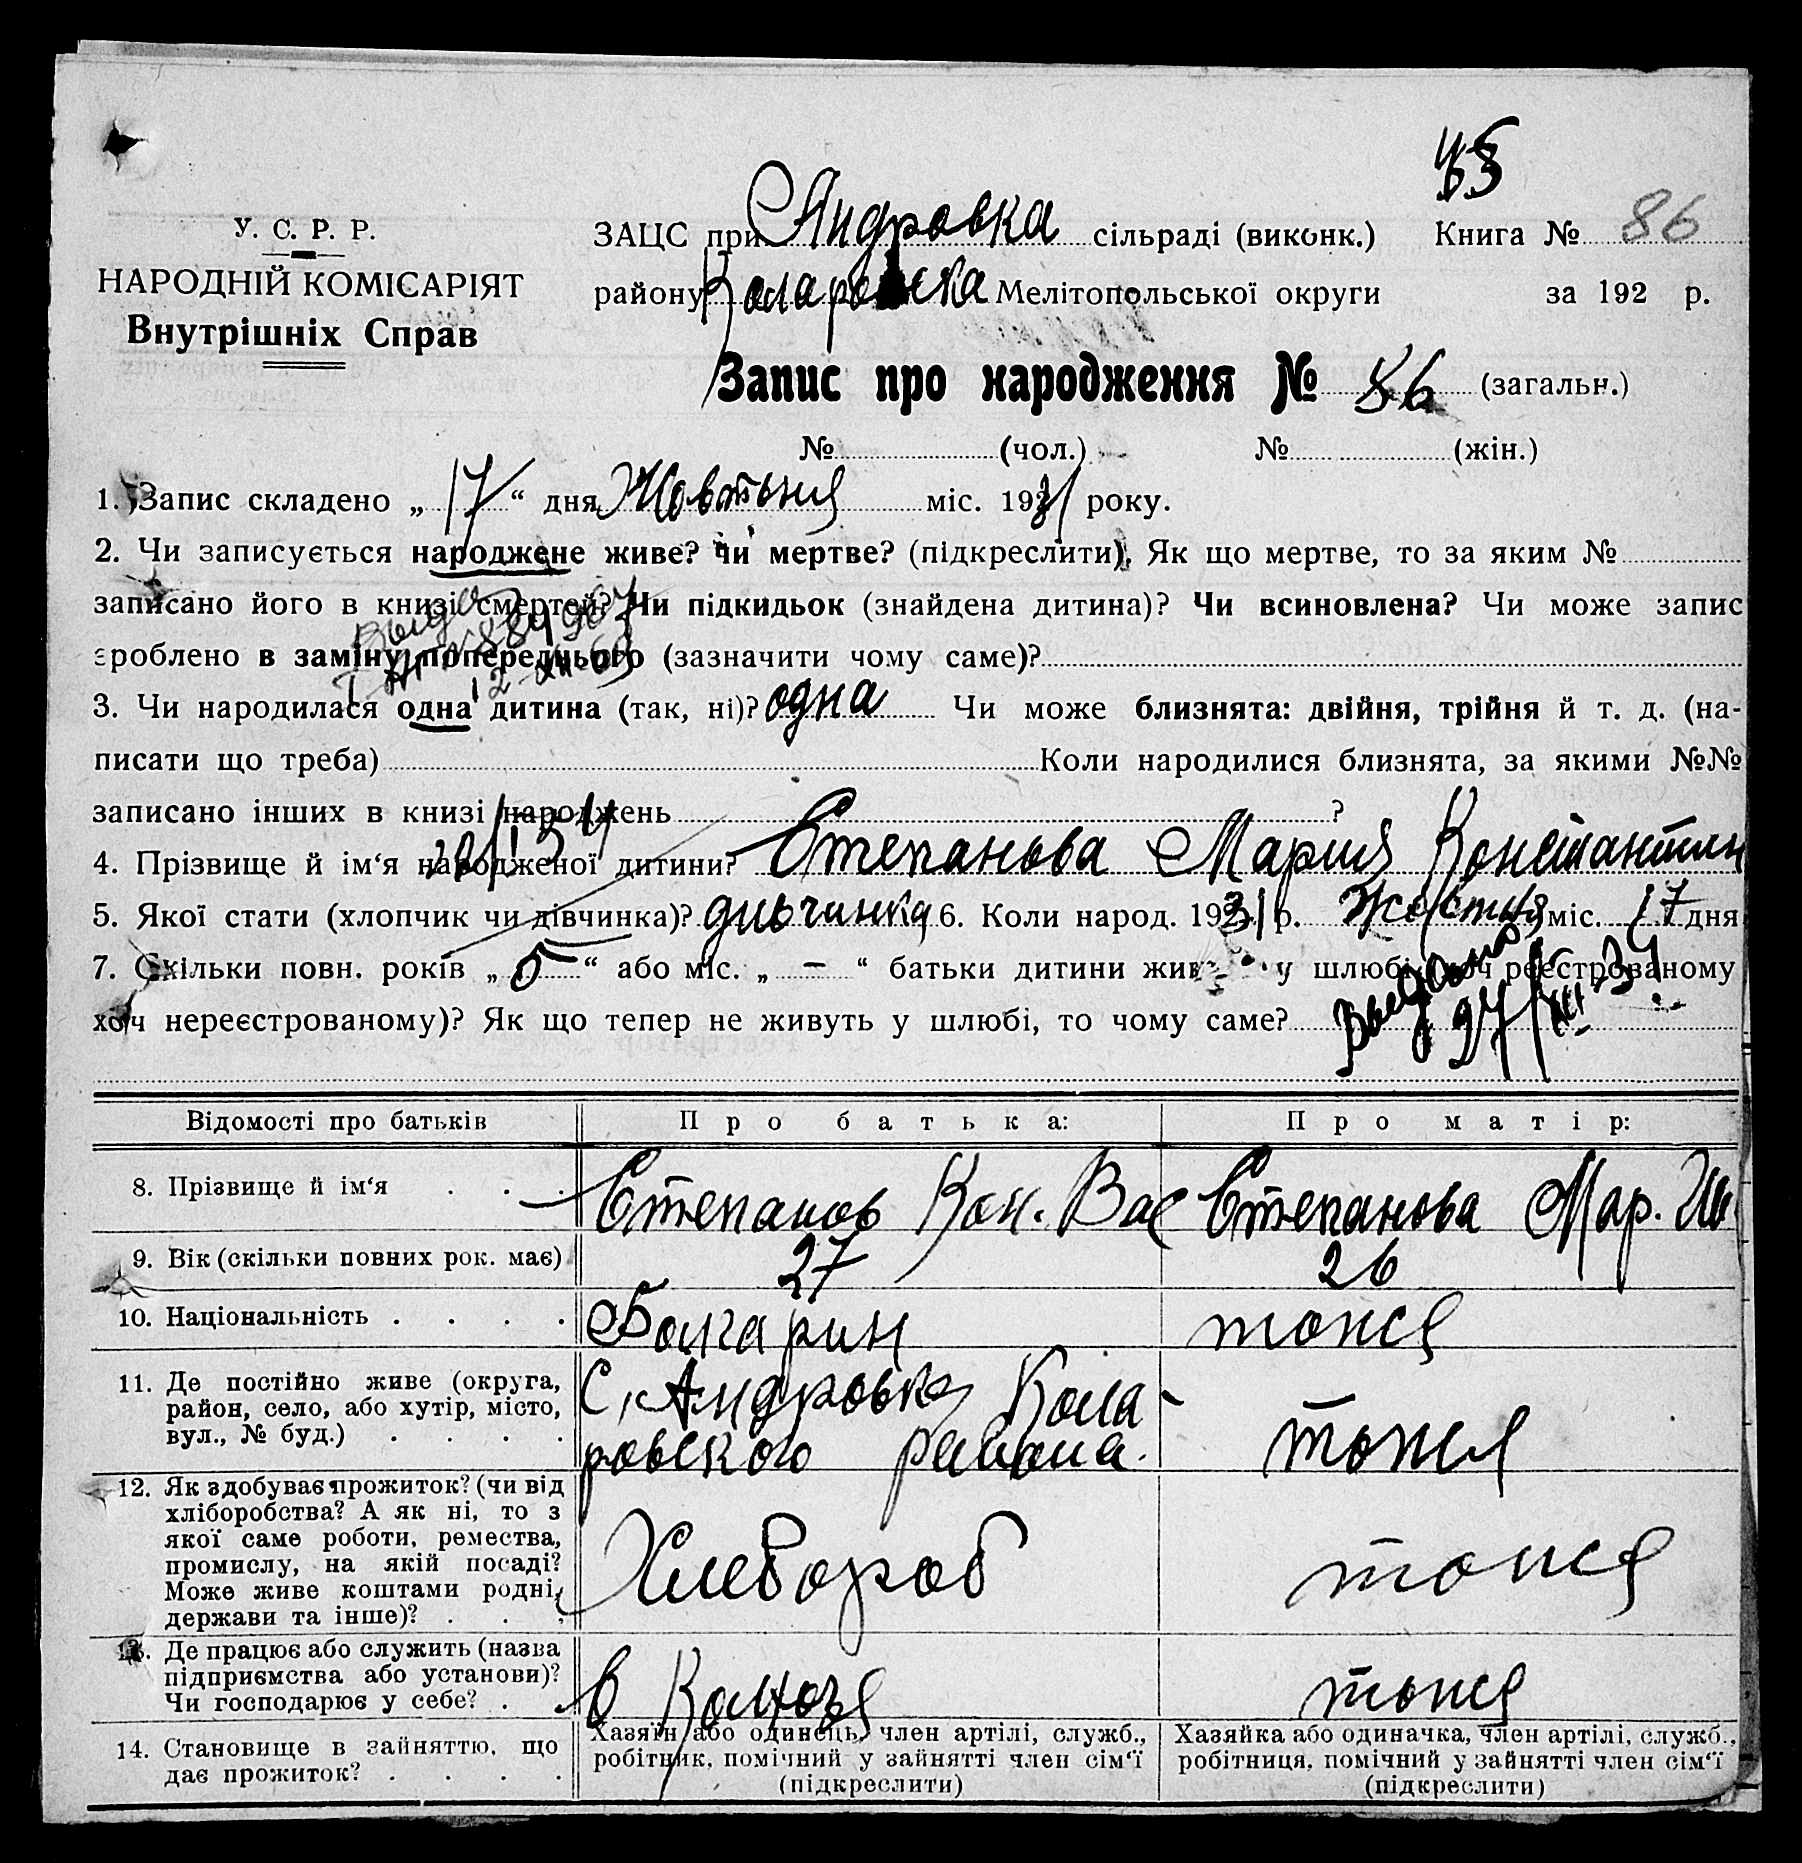 45
У. С. Р. Р.
НАРОДНІЙ КОМІСАРІЯТ
Внутрішніх Справ
ЗАЦС при Андровка сільраді (виконк.) Книга № 86
району Коларовска Мелітопольської округи за 192 р.
Запис про народження № 86 (загальн.)
№ (чол.) № (жін.)
1. Запис складено „ 17 “ дня Жовтьня міс. 1931 року.
2. Чи записується народжене живе? чи мертве? (підкреслити). Як що мертве, то за яким №
записано його в книзі смертей? Чи підкидьок (знайдена дитина)? Чи всиновлена? Чи може запис
зроблено в заміну попереднього (зазначити чому саме)?
12-XII-63
3. Чи народилася одна дитина (так, ні)? одна Чи може близнята: двійня, трійня й т. д. (на-
писати що треба) Коли народилися близнята, за якими №№
записано інших в книзі народжень ?
4. Прізвище й ім‘я народженої дитини? Степанова Мария Константин
5. Якої стати (хлопчик чи дівчинка)? дивчинка 6. Коли народ. 1931 р. Жовтня міс. 17 дня
7. Скільки повн. років „ 5 “ або міс. „ – “ батьки дитини живуть у шлюбі (хоч реєстрованому
хоч нереєстрованому)? Як що тепер не живуть у шлюбі, то чому саме?
Выдано
27/XII-34
Відомості про батьків Про батька: Про матір:
8. Прізвище й ім‘я . . . Степанов Кон. Вас Степанова Мар. Ив
9. Вік (скільки повних рок. має) 27 26
10. Національність . . . . Болгарин тоже
11. Де постійно живе (округа, район, село, або хутір, місто, вул., № буд.) . . . .
С. Андровка Кола-
ровского района.
тоже
12. Як здобуває прожиток? (чи від
хліборобства? А як ні, то з
якої саме роботи, ремества,
промислу, на якій посаді?
Може живе коштами родні,
держави та інше)? . . .
Хлебороб тоже
13. Де працює або служить (назва
підприємства або установи)?
Чи господарює у себе? .
в Колхозе тоже
14. Становище в зайняттю, що
дає прожиток? . . . .
Хазяїн або одинець, член артілі, служб.,
робітник, помічний у зайнятті член сім‘ї
(підкреслити)
Хазяйка або одиначка, член артілі, служб.,
робітниця, помічний у зайнятті член сім‘ї
(підкреслити)